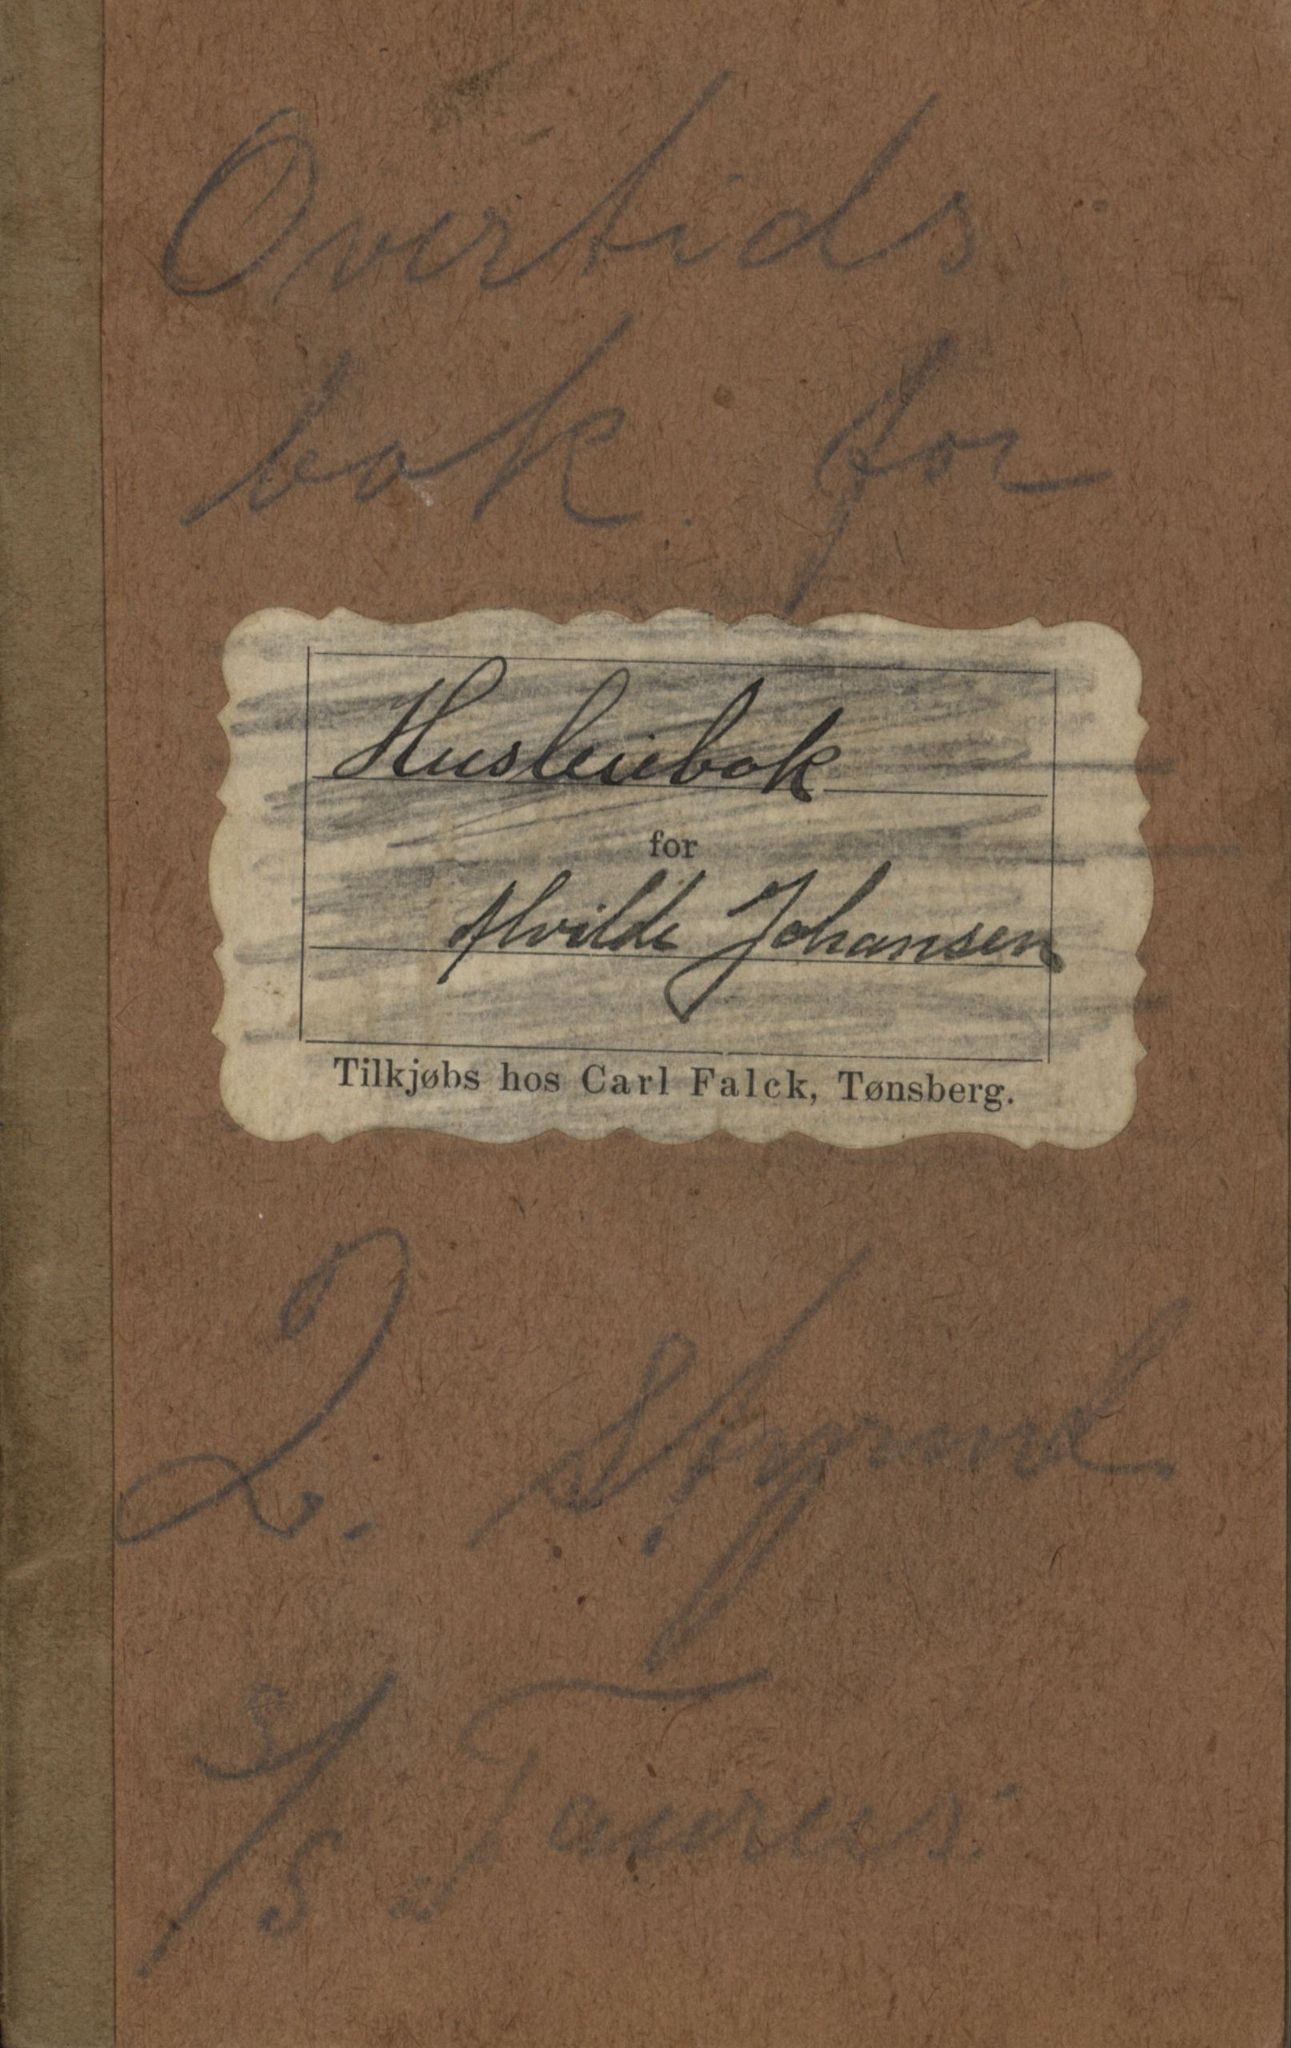 Overtids
bok for
Husleiebok
for
Alvilde Johansen
Tilkjøbs hos Carl Falck, Tønsberg.
2. Styrmd.
S/S Taurus.